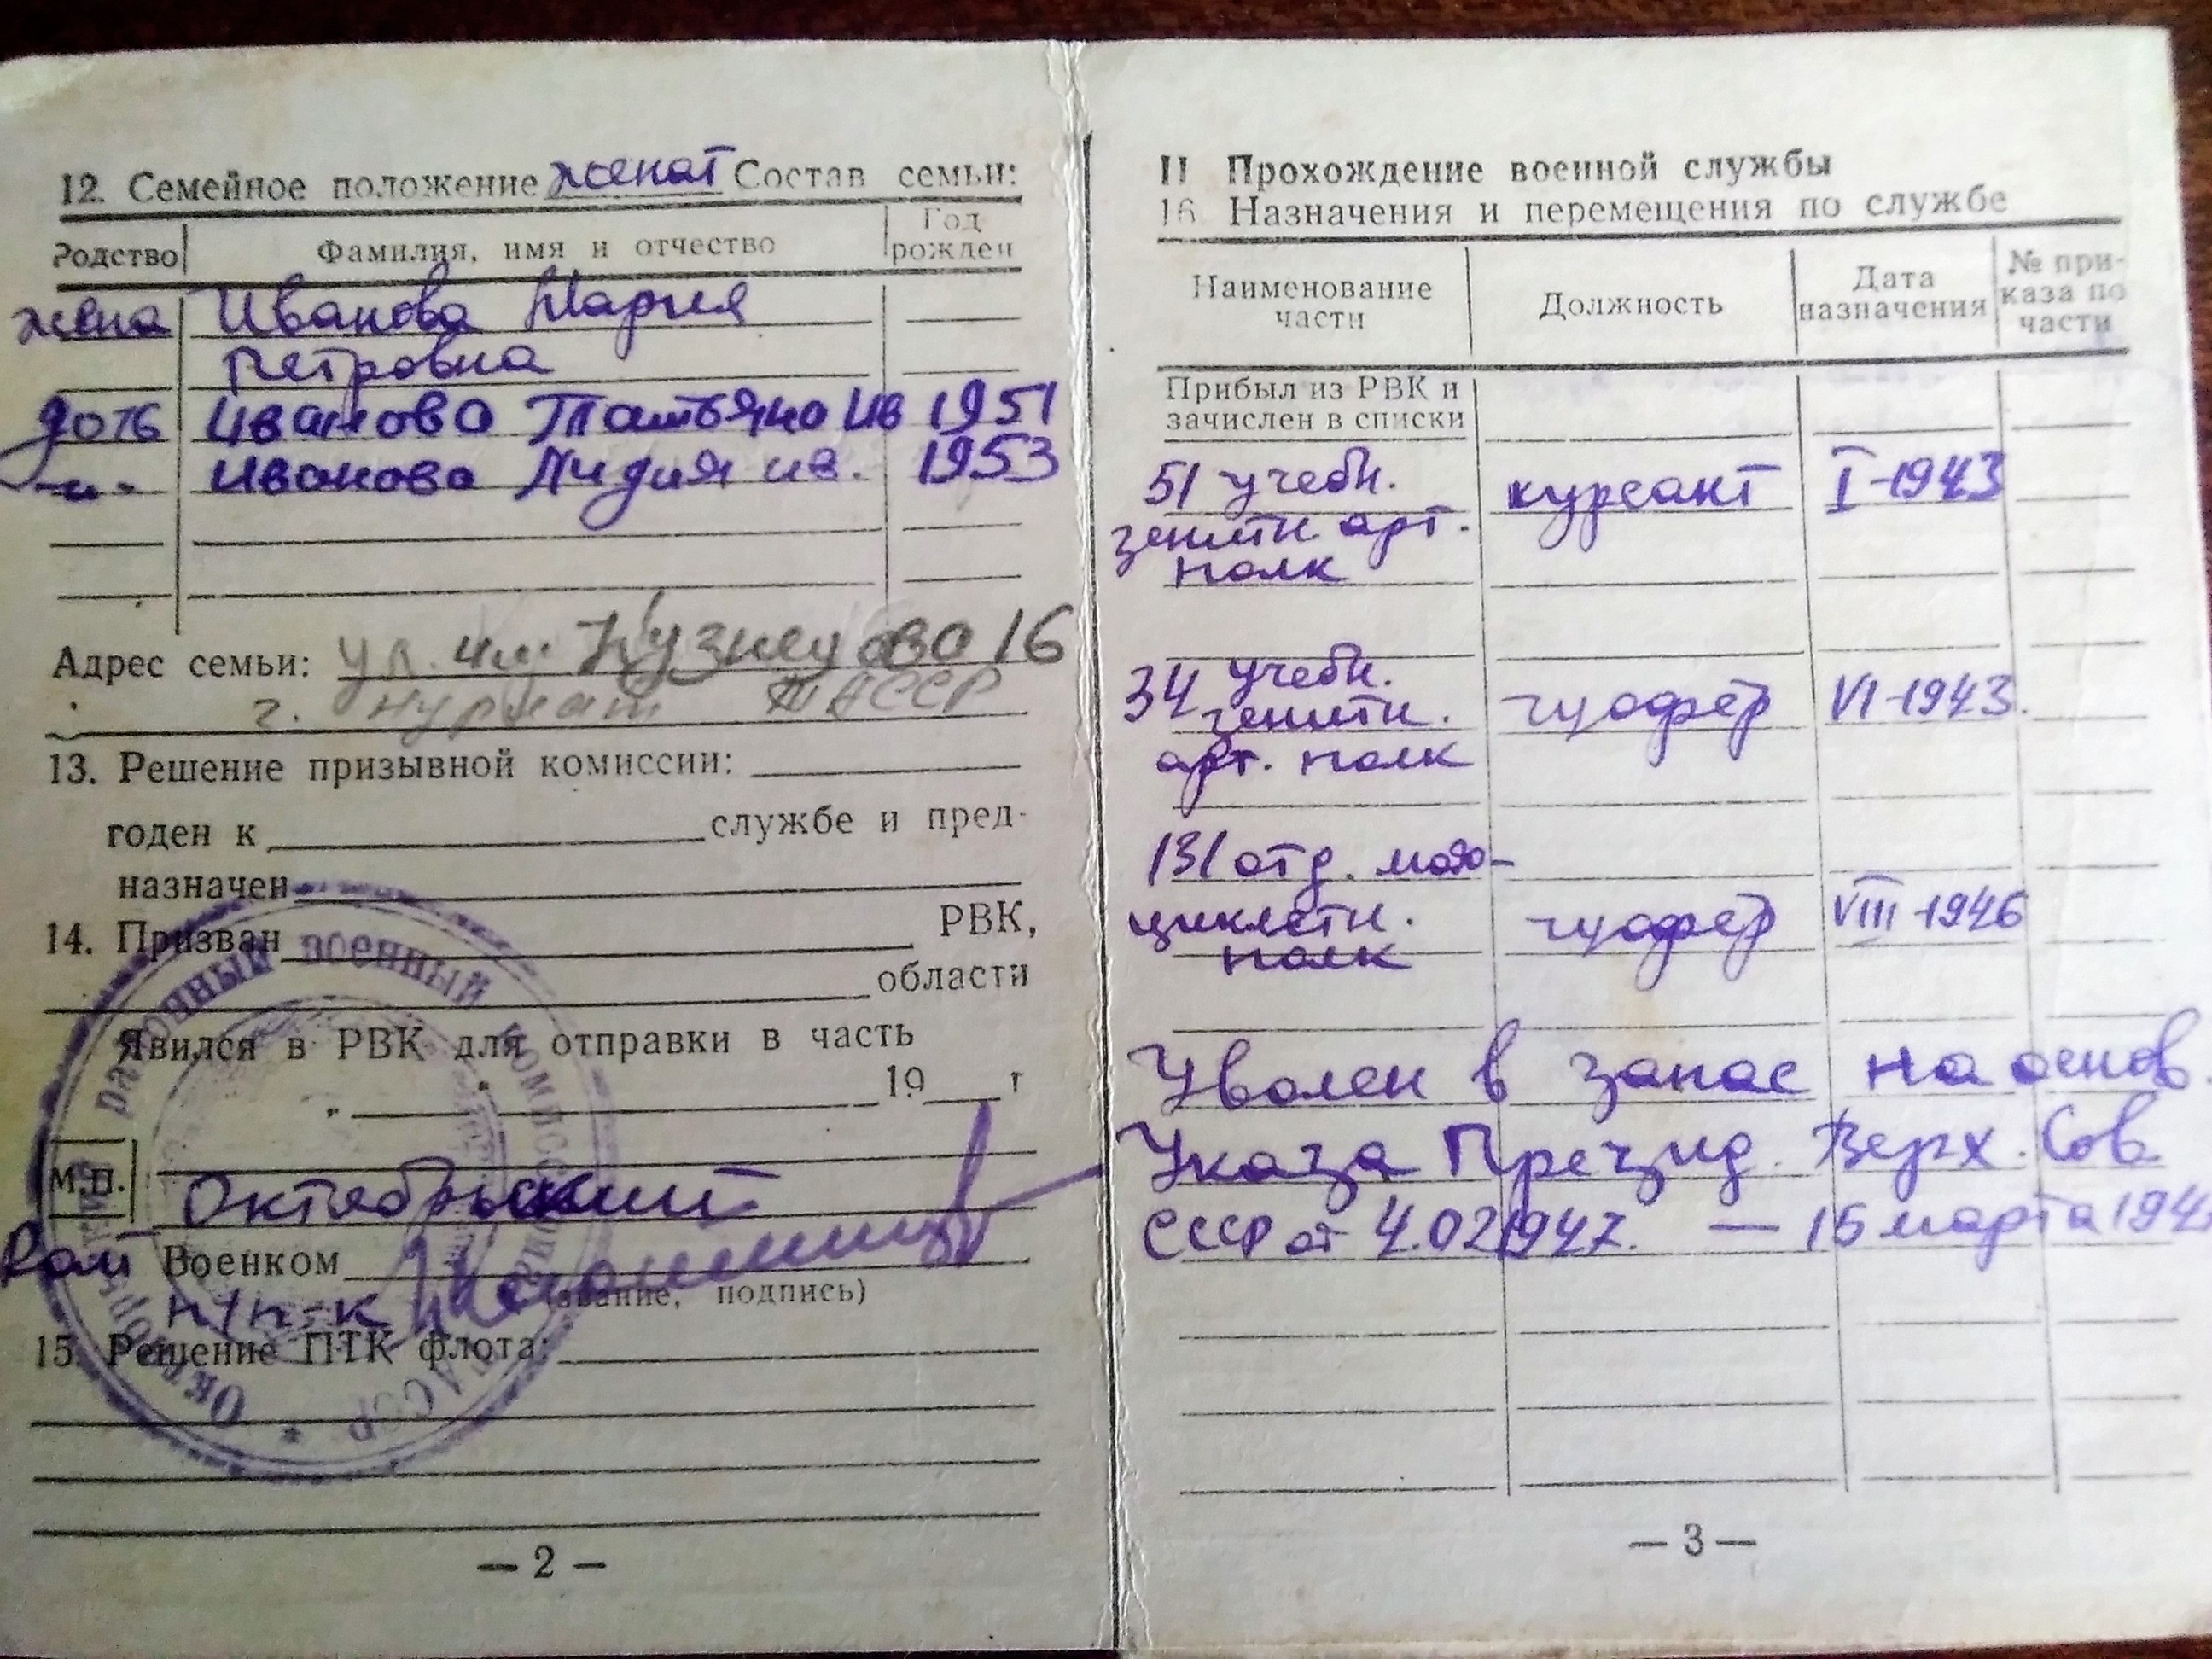 12. Семейное положение женат Состав семьи:
Родство Фамилия, имя и отчество Год рожден
жена Иванова Мария
Петровна
дочь Иванова Татьяна Ив 1951
-и- Иванова Лидия ив. 1953
Адрес семьи: ул. им. Кузнецова 16
г. Нурлат ТАССР
13. Решение призывной комиссии:
годен к службе и пред-
назначен
14. Призван РВК,
области
Явился в РВК для отправки в часть
" " 19 г
М.П.
Октябрьский
Рай Военком
п/п-к (звание, подпись)
15. Решение ПТК флота:
районный военный комиссариат
* ТАССР
— 2 —
II Прохождение военной службы
16 Назначения и перемещения по службе
Наименование части Должность Дата назначения № при-
каза по
части
Прибыл из РВК и
зачислен в списки
51 учебн. курсант I-1943
зенитн. арт.
полк
34 учебн.
зенитн. шофер VI-1943.
арт. полк
131 отд. мото-
циклетн. шофер VIII-1946
полк
Уволен в запас на основ.
Указа Презид. Верх. Сов.
СССР от 4.02 1947. — 15 марта 194
— 3 —